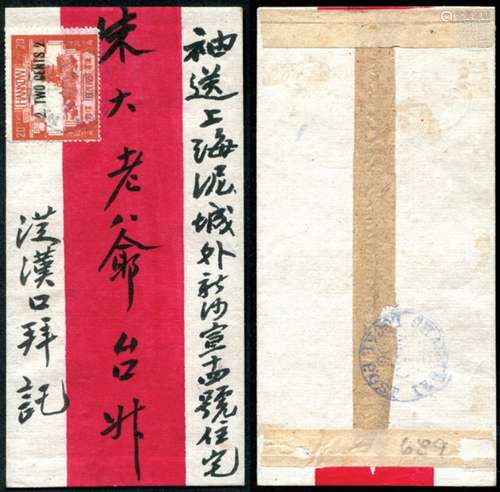 袖送上海泥城外新沙宣孟號住宅
朱大老爺台升
從漢口拜託
20
HANKOW
TWO CENTS 2
689